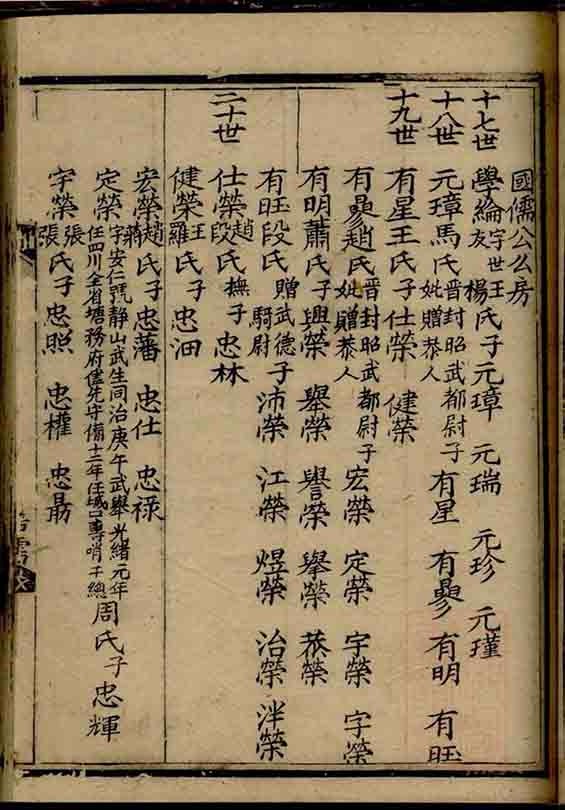 國儒公么房
十七世 學綸字世友 王楊氏子元璋 元瑞 元珍 元瑾
十八世 元璋馬氏晉封昭武都尉妣贈恭人子有星 有曑 有明 有旺
十九世 有星王氏子仕榮 健榮
有曑趙氏晉封昭武都尉妣贈恭人子宏榮 定榮 字榮 字榮
有明蕭氏子興榮 舉榮 譽榮 舉榮 榮
有旺段氏贈武德騎尉子沛榮 江榮 煜榮 治榮 泮榮
二十世 仕榮趙段氏撫子忠林
健榮王羅氏子忠泗
宏榮趙蔣氏子忠藩 忠仕 忠禄
定榮字安仁號靜山武生同治庚午武舉光緒元年任四川全省塘務府儘先守備十二年任城口專哨千總周氏子忠輝
字榮張張氏子忠照 忠權 忠勗